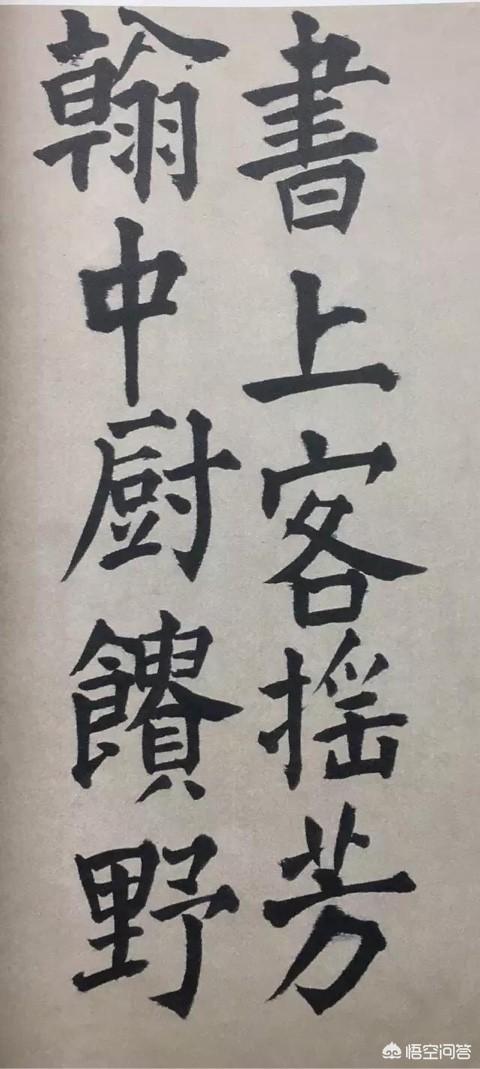 書上客摇芳
翰中厨饋野
悟空问答